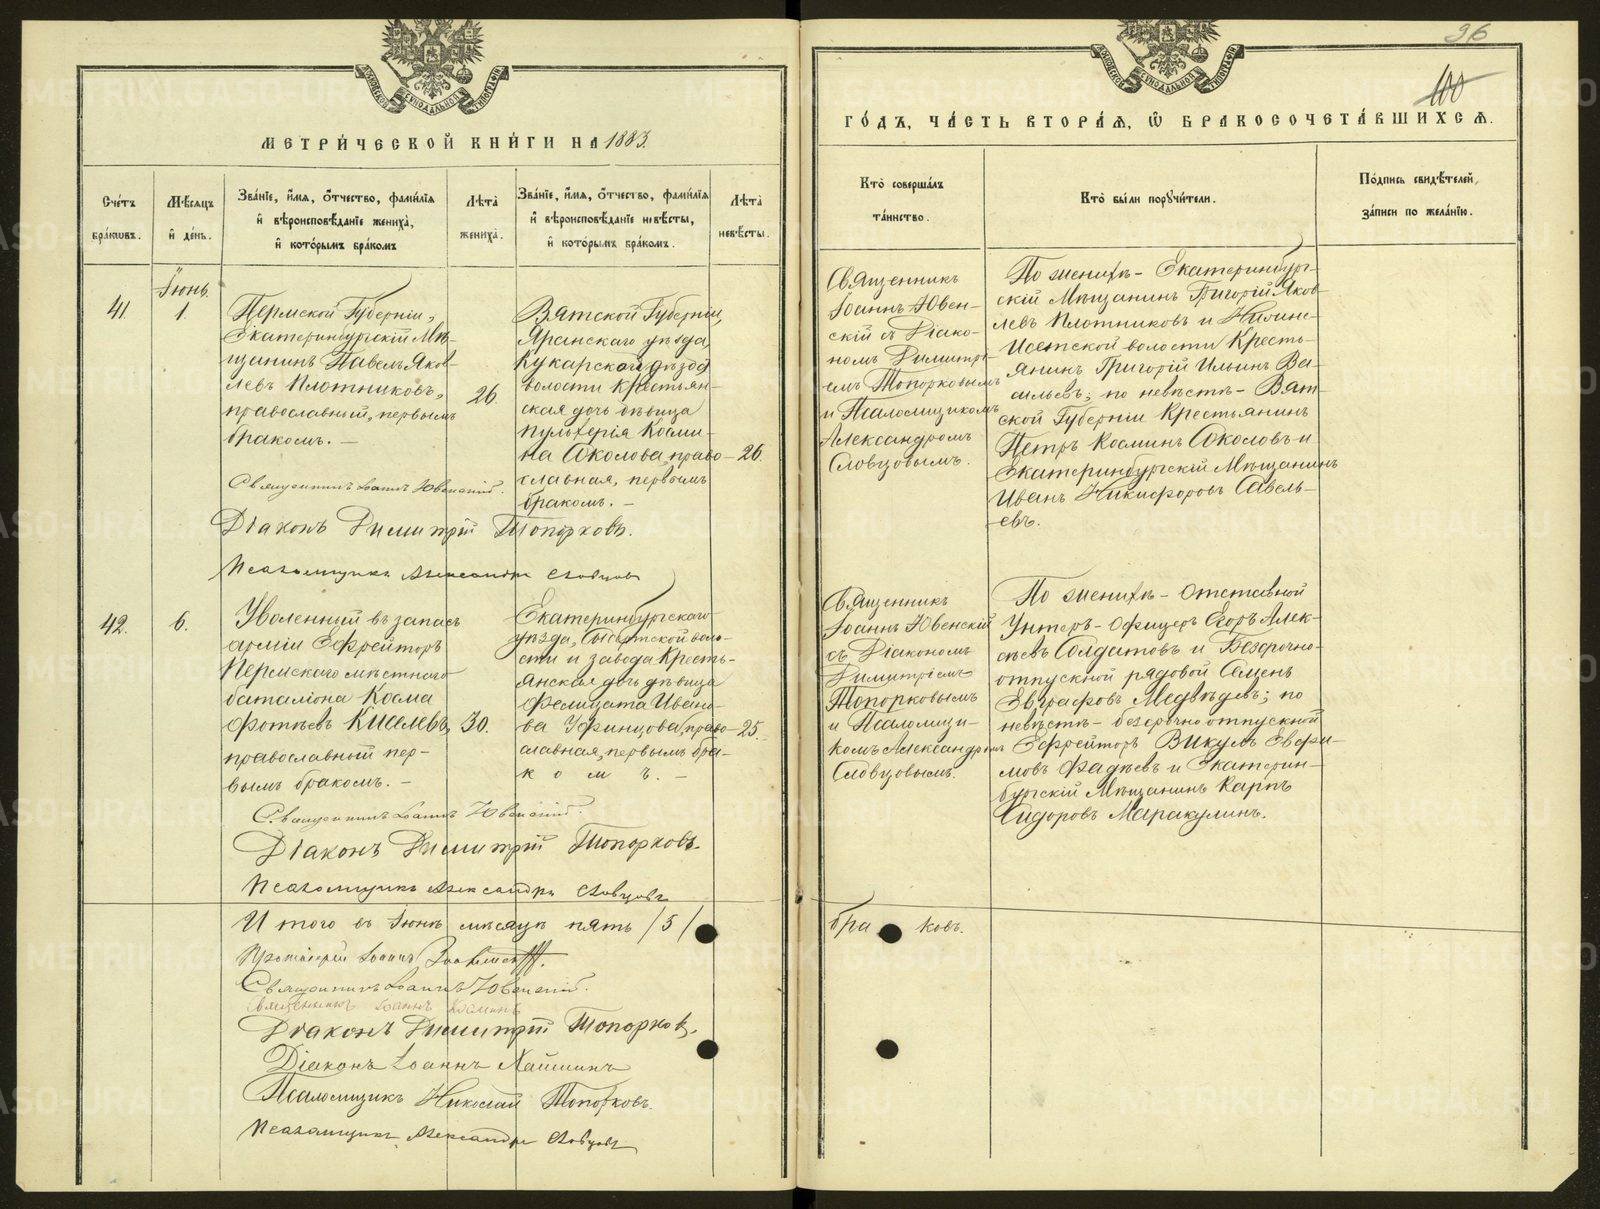 МЕТРИ́ЧЕСКОЙ КНИ́ГИ НА 1883.
Сче́тъ бра́ковъ.
Мѣ́сяцъ и҆ де́нь.
Зва́нїе, и҆́мя, ѻ҆́тчество, фами́лїя и҆ вѣроисповѣ́данїе жениха̀, и҆ кото́рымъ бра́комъ
Лѣта̀ жениха̀.
Зва́нїе, и҆́мя, ѻ҆́тчество, фами́лїя и҆ вѣроисповѣ́данїе невѣ́сты, и҆ кото́рымъ бра́комъ.
Лѣта̀ невѣ́сты.
Іюнь.
41.
1.
Пермской Губерніи,
Екатеринбургскій Мѣ-
щанинъ Павелъ Яков-
левъ Плотниковъ,
православный, первымъ
бракомъ. —
26.
Вятской Губерніи,
Яранскаго уѣзда,
Кукарской
волости Крестьян-
ская дочь дѣвица
Пульхерія Козми-
на Соколова, право-
славная, первымъ
бракомъ. —
26.
Священникъ Іоаннъ Ювенскій.
Діаконъ Димитрій Топорковъ.
Псаломщикъ Александръ Словцовъ
42.
6.
Уволенный въ запасъ
арміи Ефрейторъ
Пермскаго мѣстнаго
баталіона Косма
Фотіевъ Киселевъ,
православный пер-
вымъ бракомъ. —
30.
Екатеринбургскаго
уѣзда, Сысертской воло-
сти и завода Кресть-
янская дочь дѣвица
Фелицата Ивано-
ва Уфинцова, право-
славная, первымъ бра-
комъ. —
25.
Священникъ Іоаннъ Ювенскій.
Діаконъ Димитрій Топорковъ.
Псаломщикъ Александръ Словцовъ
Итого въ Іюнѣ мѣсяцѣ пять /5/
Протоіерей Іоаннъ
Священникъ Іоаннъ Ювенскій.
Священникъ Іоаннъ
Діаконъ Димитрій Топорков.
Діаконъ Іоаннъ
Псаломщикъ Николай Топорковъ.
Псаломщикъ Александръ Словцовъ
96
100
ГО́ДЪ, ЧА́СТЬ ВТОРА́Я, Ѽ БРАКОСОЧЕТА́ВШИХСЯ.
Кто̀ соверша́лъ та́инство.
Кто̀ бы́ли поручи́тели.
По́дпись свидѣ́телей, за́писи по жела́нїю.
Священникъ
Іоаннъ Ювен-
скій съ Діако-
номъ Димитрі-
емъ Топорковымъ
и Псаломщикомъ
Александромъ
Словцовымъ.
По женихѣ — Екатеринбург-
скій Мѣщанинъ Григорій Яков-
левъ Плотниковъ и Нижне-
Исетской волости Кресть-
янинъ Григорій Ильинъ Ва-
сильевъ; по невѣстѣ — Вят-
ской Губерніи Крестьянинъ
Петръ Козминъ Соколовъ и
Екатеринбургскій Мѣщанинъ
Иванъ Никифоровъ Савель-
евъ.
Священникъ
Іоаннъ Ювенскій
съ Діакономъ
Димитріемъ
Топорковымъ
и Псаломщи-
комъ Александромъ
Словцовымъ.
По женихѣ — отставной
Унтеръ-Офицеръ Егоръ Алек-
сѣевъ Солдатовъ и Безсрочно-
отпускной рядовой Семенъ
Евграфовъ Медвѣдевъ; по
невѣстѣ — безсрочно отпускной
Ефрейторъ Викулъ Евфи-
мовъ Фадѣевъ и Екатерин-
бургскій Мѣщанинъ Карпъ
Сидоровъ Маракулинъ.
бра ковъ.